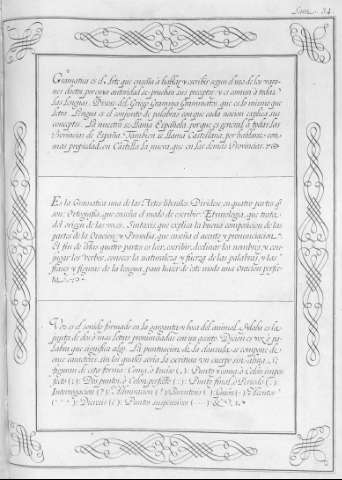 Lam. 34.
Gramatica es el Arte que enseña à hablar, y escribir segun el uso de los varo-
nes doctos por cuya autoridad se prueban sus preceptos: y es comun à todas
las lenguas. Dicese del Griego Gramma Grammatos, que es lo mismo que
letra. Lengua es el conjunto de palabras con que cada nacion explica sus
conceptos. La nuestra se llama Española, porque es general à todas las
Provincias de España. Tambien se llama Castellana, por hablarse con
mas propiedad en Castilla la nueva, que en las demas Provincias.
Es la Gramatica una de las Artes liberales. Dividese en quatro partes q.
son: Ortografia, que enseña el modo de escribir: Etimologia, que trata
del origen de las voces: Sintaxis, que explica la buena composicion de las
partes de la Oracion; y Prosodia, que enseña el acento y pronunciacion.
El fin de estas quatro partes es leer, escribir, declinar los nombres, y con-
jugar los verbos, conocer la naturaleza y fuerza de las palabras, y las
frases y figuras de la lengua, para hacer de este modo una Oracion perfec-
ta.
Voz es el sonido formado en la garganta y boca del animal. Silaba es la
junta de dos ò mas letras pronunciadas con un acento. Diccion es voz ò pa-
labra que significa algo. La puntuacion de la clausula se compone de
once caracteres sin los quales seria la escritura un cuerpo sin alma. Se
figuran de esta forma: Coma, ò Inciso (,). Punto y coma, ò Colon imper-
fecto (;). Dos puntos, ò Colon perfecto (:). Punto final, ò Periodo (.).
Interrogacion (?). Admiracion (!). Parentesis ( ). Guion
Dieresis (¨). Puntos suspensivos (....). &c.